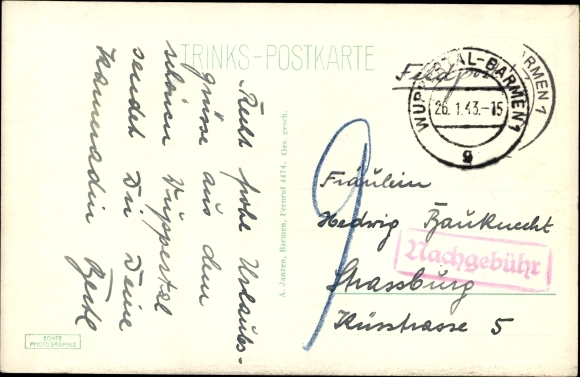 TRINKS-POSTKARTE
Recht frohe Urlaubs-
grüsse aus dem
schönen Wuppertal
sendet Dir Deine
Kameradin
A. Janzen, Barmen, Fernruf 4474. Ges. gesch.
ECHTE
PHOTOGRAPHIE
Feldpost
WUPPERTAL-BARMEN 1
26.1.43.-15
g
BARMEN 1
9
Fräulein
Hedwig Bauknecht
Nachgebühr
Strassburg
Küsstrasse 5